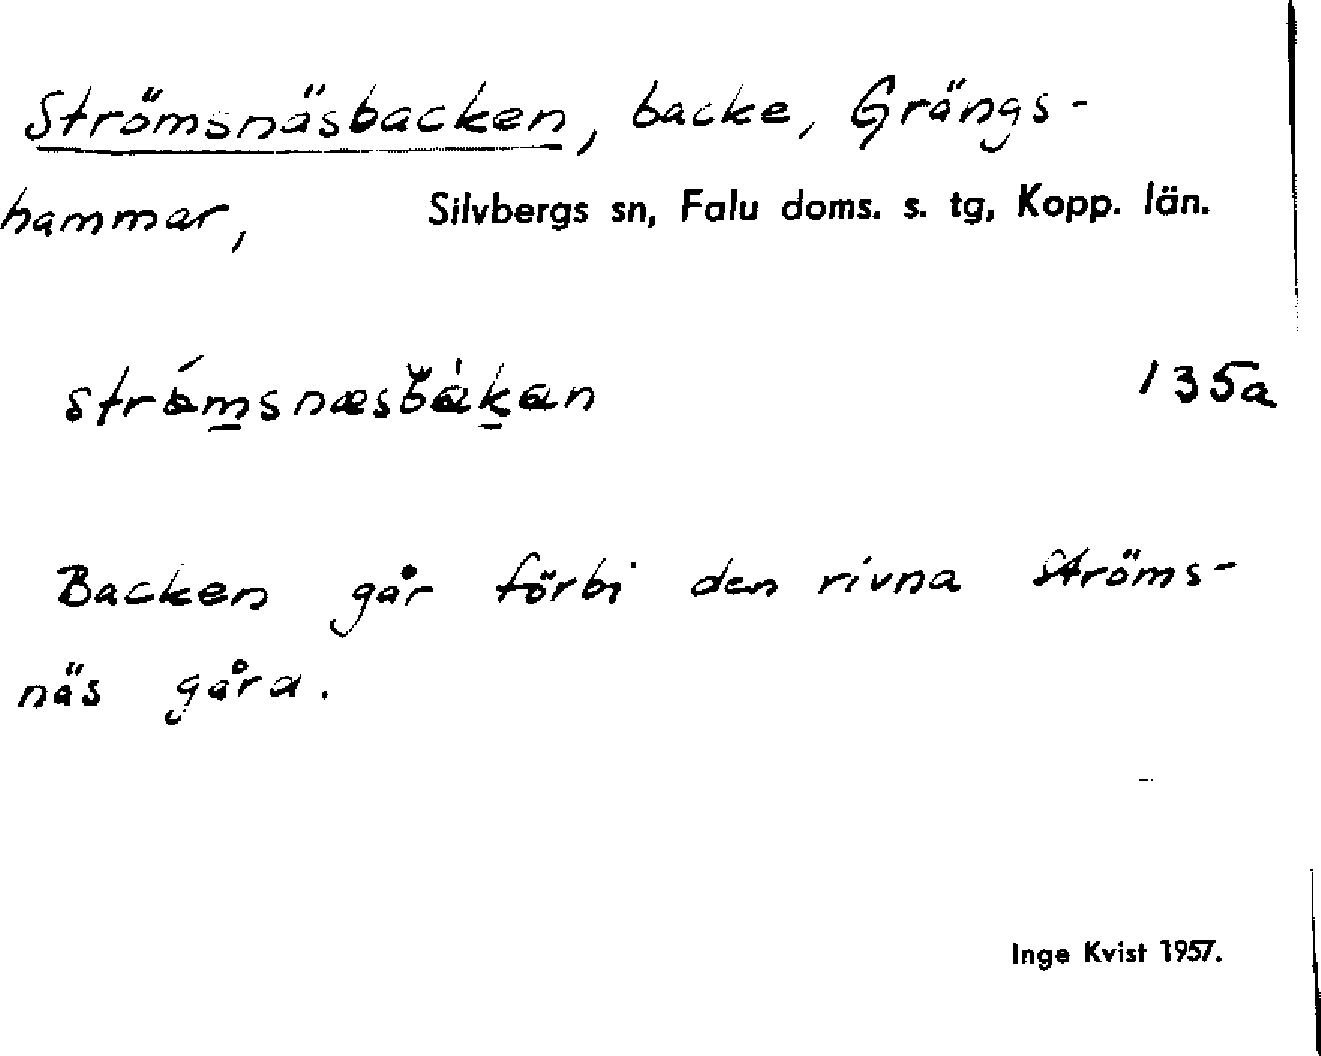 Strömsnäsbacken, backe, Grängs-
hammar, Silvbergs sn, Falu doms. s. tg, Kopp. län.
135a
Backen går förbi den rivna Ströms-
näs gåra.
Inge Kvist 1957.